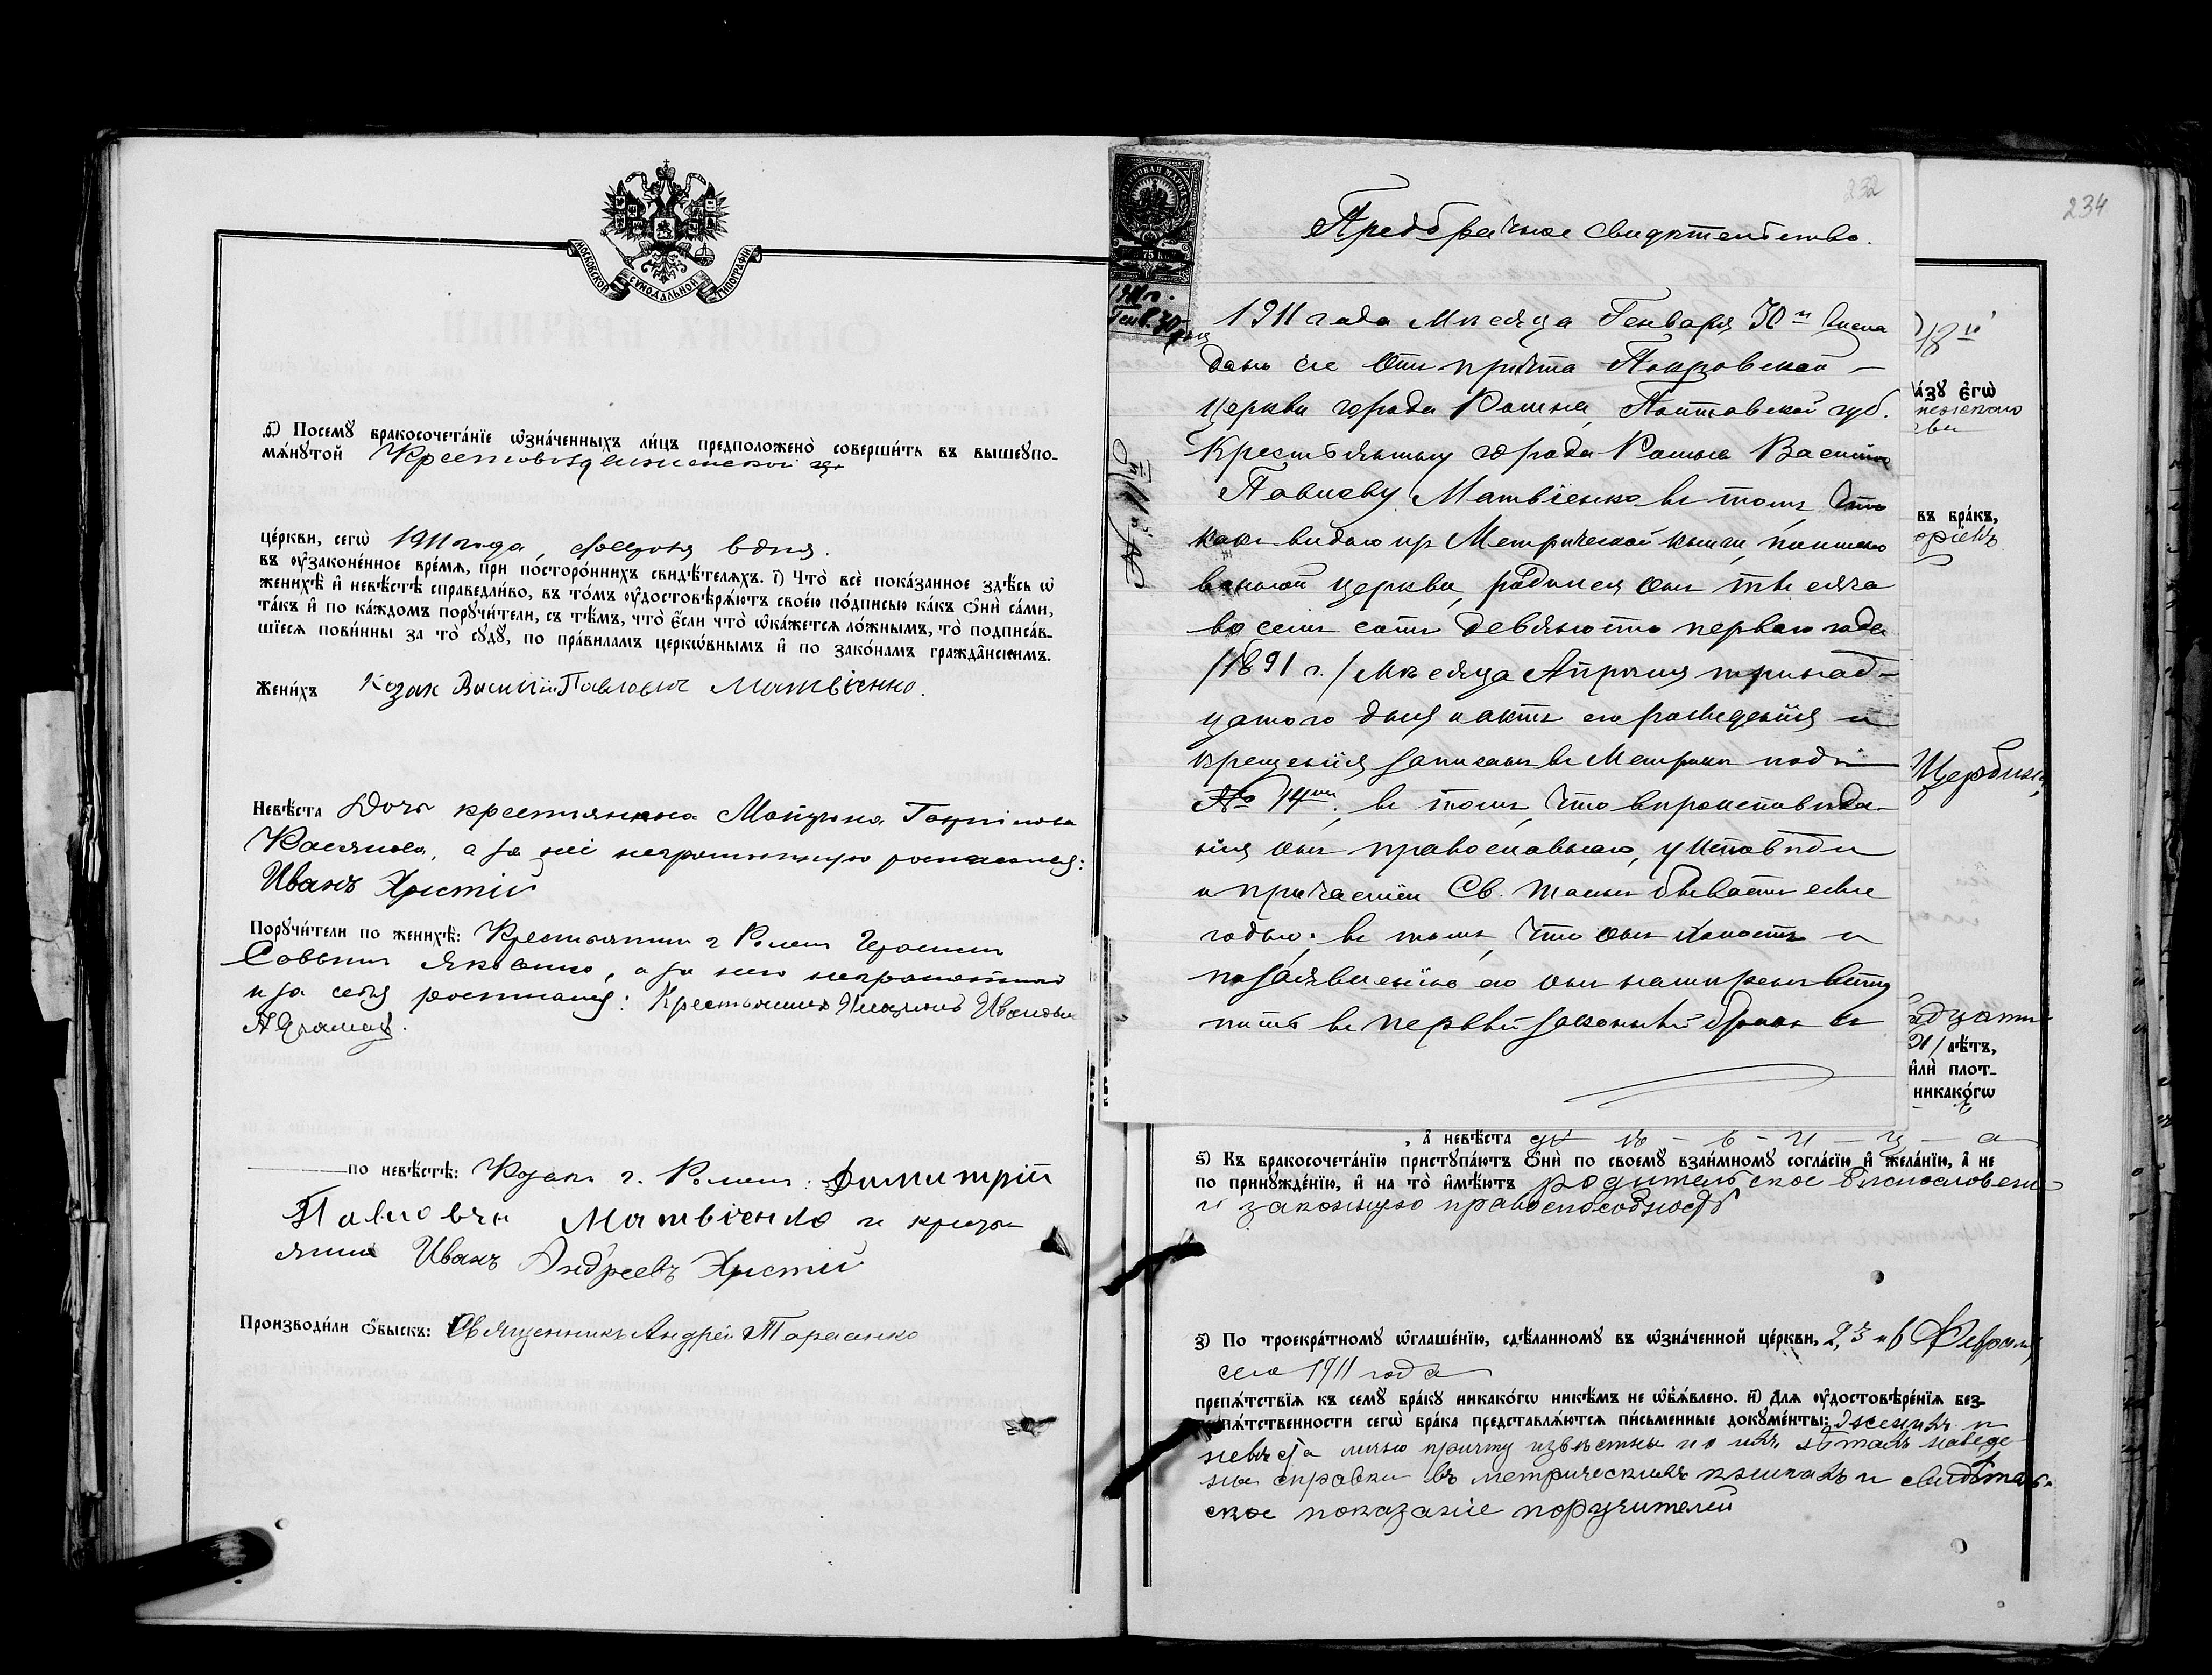 МОСКОВСКОЙ СѴНОДАЛЬНОЙ ТИПОГРАФІИ
д҃) Посемꙋ бракосочета́нїе ѡ҆зна́ченныхъ ли́цъ предположено̀ соверши́ть въ вышеꙋпо-
мѧ́нꙋтой Крестовоздвиженской цр
це́ркви, сегѡ̀ 1911 года, февраля 6 дня.
въ ᲂу҆зако́ненное вре́мѧ, при посторо́ннихъ свидѣ́телѧхъ. і҃) Что̀ всѐ пока́занное здѣ́сь ѡ҆
женихѣ̀ и҆ невѣ́стѣ справедли́во, въ то́мъ ᲂу҆достовѣрѧ́ютъ свое́ю по́дписью ка́къ ѻ҆нѝ са́ми,
та́къ и҆ по ка́ждомъ порꙋчи́тели, съ тѣ́мъ, что̀ є҆́сли что̀ ѡ҆ка́жетсѧ ло́жнымъ, то̀ подписа́в-
шїесѧ пови́нны за то̀ сꙋдꙋ̀, по пра́виламъ церко́внымъ и҆ по зако́намъ гражда́нскимъ.
Жени́хъ Козак Василій Павловъ Матвіенко.
Невѣ́ста Дочь крестянина
Касяненко, а за неі неграмотную росписался:
Иванъ Христій
Порꙋчи́тели по женихѣ̀: Крестьянин г Ромен Герасим
Саввин Яковенко, а за него неграмотнаго
и за себя росписался: Крестьянинъ Ивановъ
по невѣ́стѣ: Козак г. Ромен: Димитрій
Павловъ Матвіенко и крест
янин Иванъ Андреевъ Христій
Производи́ли ѻ҆́быскъ: Священникъ Андрей Тарасенко
234
232
ГЕРБОВАЯ МАРКА
75 коп
1911 г.
Генв. 30 дня
Предбрачное свидѣтельство.
1911 года Мѣсяца Генваря 30го числа
дано сіе отъ причта Покровской –
Церкви города Ромна, Полтавской губ.
Крестьянину города Ромна Василію
Павлову Матвіенко въ томъ, что
какъ видно изъ Метрической книги, поимено
ванной церкви, родился онъ тысяча
восемь сотъ девяносто перваго года
/1891 г./ Мѣсяца Апрѣля тринад-
цатого дня и актъ его рожденія и
крещенія записанъ въ Метрикъ подъ
№ 14мъ; въ томъ, что вѣроисповѣда-
нія онъ православнаго, у исповѣди
и причастіи Св. таинъ бываетъ еже
годно; въ томъ, что онъ холостъ и
по заявленію его онъ намѣренъ всту
пить въ первый законный бракъ съ
18го
а́зꙋ є҆гѡ̀
въ бра́къ,
Щербина
21/ лѣ́тъ,
и҆лѝ плот-
никако́гѡ
, а҆ невѣ́ста дѣ – в – и – ц – а
ѕ҃) Къ бракосочета́нїю пристꙋпа́ютъ ѻ҆нѝ по своемꙋ̀ взаи́мномꙋ согла́сїю и҆ жела́нїю, а҆ не
по принꙋжде́нїю, и҆ на то̀ и҆мѣ́ютъ родительское благословен
и законную правоспособность
з҃) По троекра́тномꙋ ѡ҆глаше́нїю, сдѣ́ланномꙋ въ ѡ҆зна́ченной це́ркви, 2, 3 и 6 Февраля
сего 1911 года
препѧ́тствїѧ къ семꙋ̀ бра́кꙋ никако́гѡ никѣ́мъ не ѡ҆б̾ѧ́влено. и҃) Длѧ ᲂу҆достовѣре́нїѧ без-
пѧ́тственности сегѡ̀ бра́ка представлѧ́ютсѧ пи́сьменные докꙋме́нты: женихъ и
невѣста лично причту извѣстны и о ихъ лѣтахъ наведе
ны справки въ метрическихъ книгахъ и свидѣтель-
ское показаніе поручителей